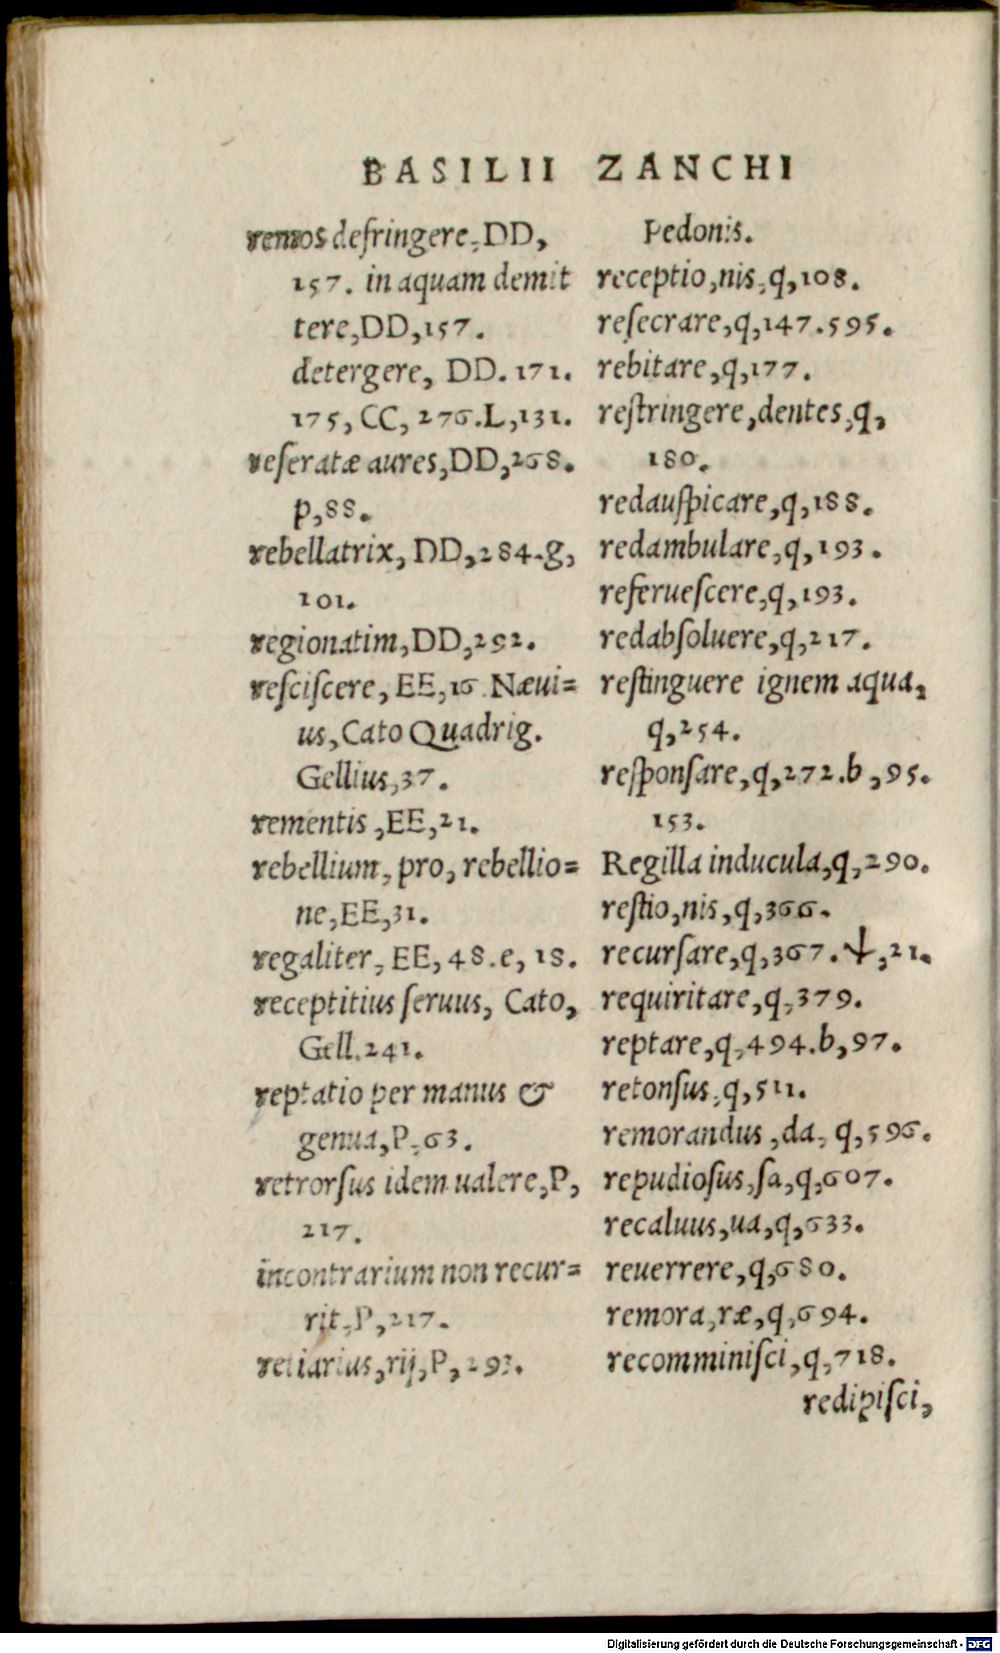 BASILII ZANCHI
remos defringere, DD,
157. in aquam demit
tere, DD, 157.
detergere, DD. 171.
175, CC, 276. L, 131.
reſeratæ aures, DD, 268.
p, 88.
rebellatrix, DD, 284. g,
101.
regionatim, DD, 292.
reſciſcere, EE, 16. Næui=
us, Cato Quadrig.
Gellius, 37.
rementis, EE, 21.
rebellium, pro, rebellio=
ne, EE, 31.
regaliter, EE, 48. e, 18.
receptitius ſeruus, Cato,
Gell. 241.
reptatio per manus &
genua, P, 63.
retrorſus idem ualere, P,
217.
incontrarium non recur=
rit, P, 217.
retiarius, rij, P, 293.
Pedonis.
receptio, nis, q, 108.
reſecrare, q, 147. 595.
rebitare, q, 177.
reſtringere, dentes, q,
180.
redauſpicare, q, 188.
redambulare, q, 193.
referueſcere, q, 193.
redabſoluere, q, 217.
reſtinguere ignem aqua,
q, 254.
reſponſare, q, 272. b, 95.
153.
Regilla inducula, q, 290.
reſtio, nis, q, 366.
recurſare, q, 367. ↓, 21.
requiritare, q, 379.
reptare, q, 494. b, 97.
retonſus, q, 511.
remorandus, da, q, 596.
repudioſus, ſa, q, 607.
recaluus, ua, q, 633.
reuerrere, q, 680.
remora, ræ, q, 694.
recomminiſci, q, 718.
redipiſci,
Digitalisierung gefördert durch die Deutsche Forschungsgemeinschaft - DFG